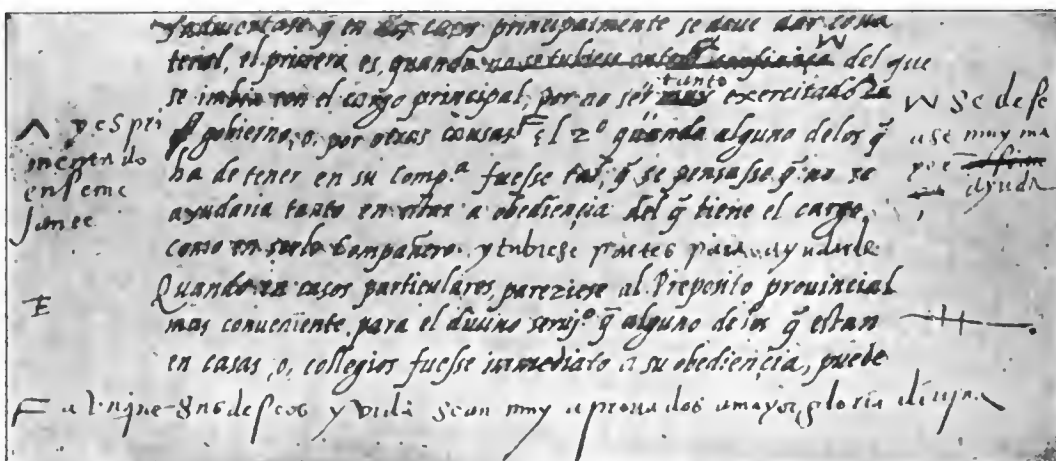 y aduiertase q̃ en dos casos principalmente se deue dar
terial, el primero es, quando no se tubiese tanta confiança del que
se imbia con el cargo principal, por no ser tanto muy exercitado
gobierno, o, por otras causas El 2º quando alguno delos q̃
ha de tener en su comp.ª fuesse tal, q̃ se pensasse q̃ no se
ayudaria tanto en estar a obediençia del q̃ tiene el cargo,
como en serle compañero. y tubiese partes para ayudarle
Quando en casos particulares, pareziese al Preposito prouincial
mas conueniente, para el diuino seruj.º q̃ alguno delos q̃ estan
en casas, o, collegios fuesse immediato a su obediençia, puede
aVnque sus deseos y vida sean muy aprouados a mayor gloria diuina
y espri
mentado
en seme
jante
E
Se dese
ase muy ma
yor
ayuda